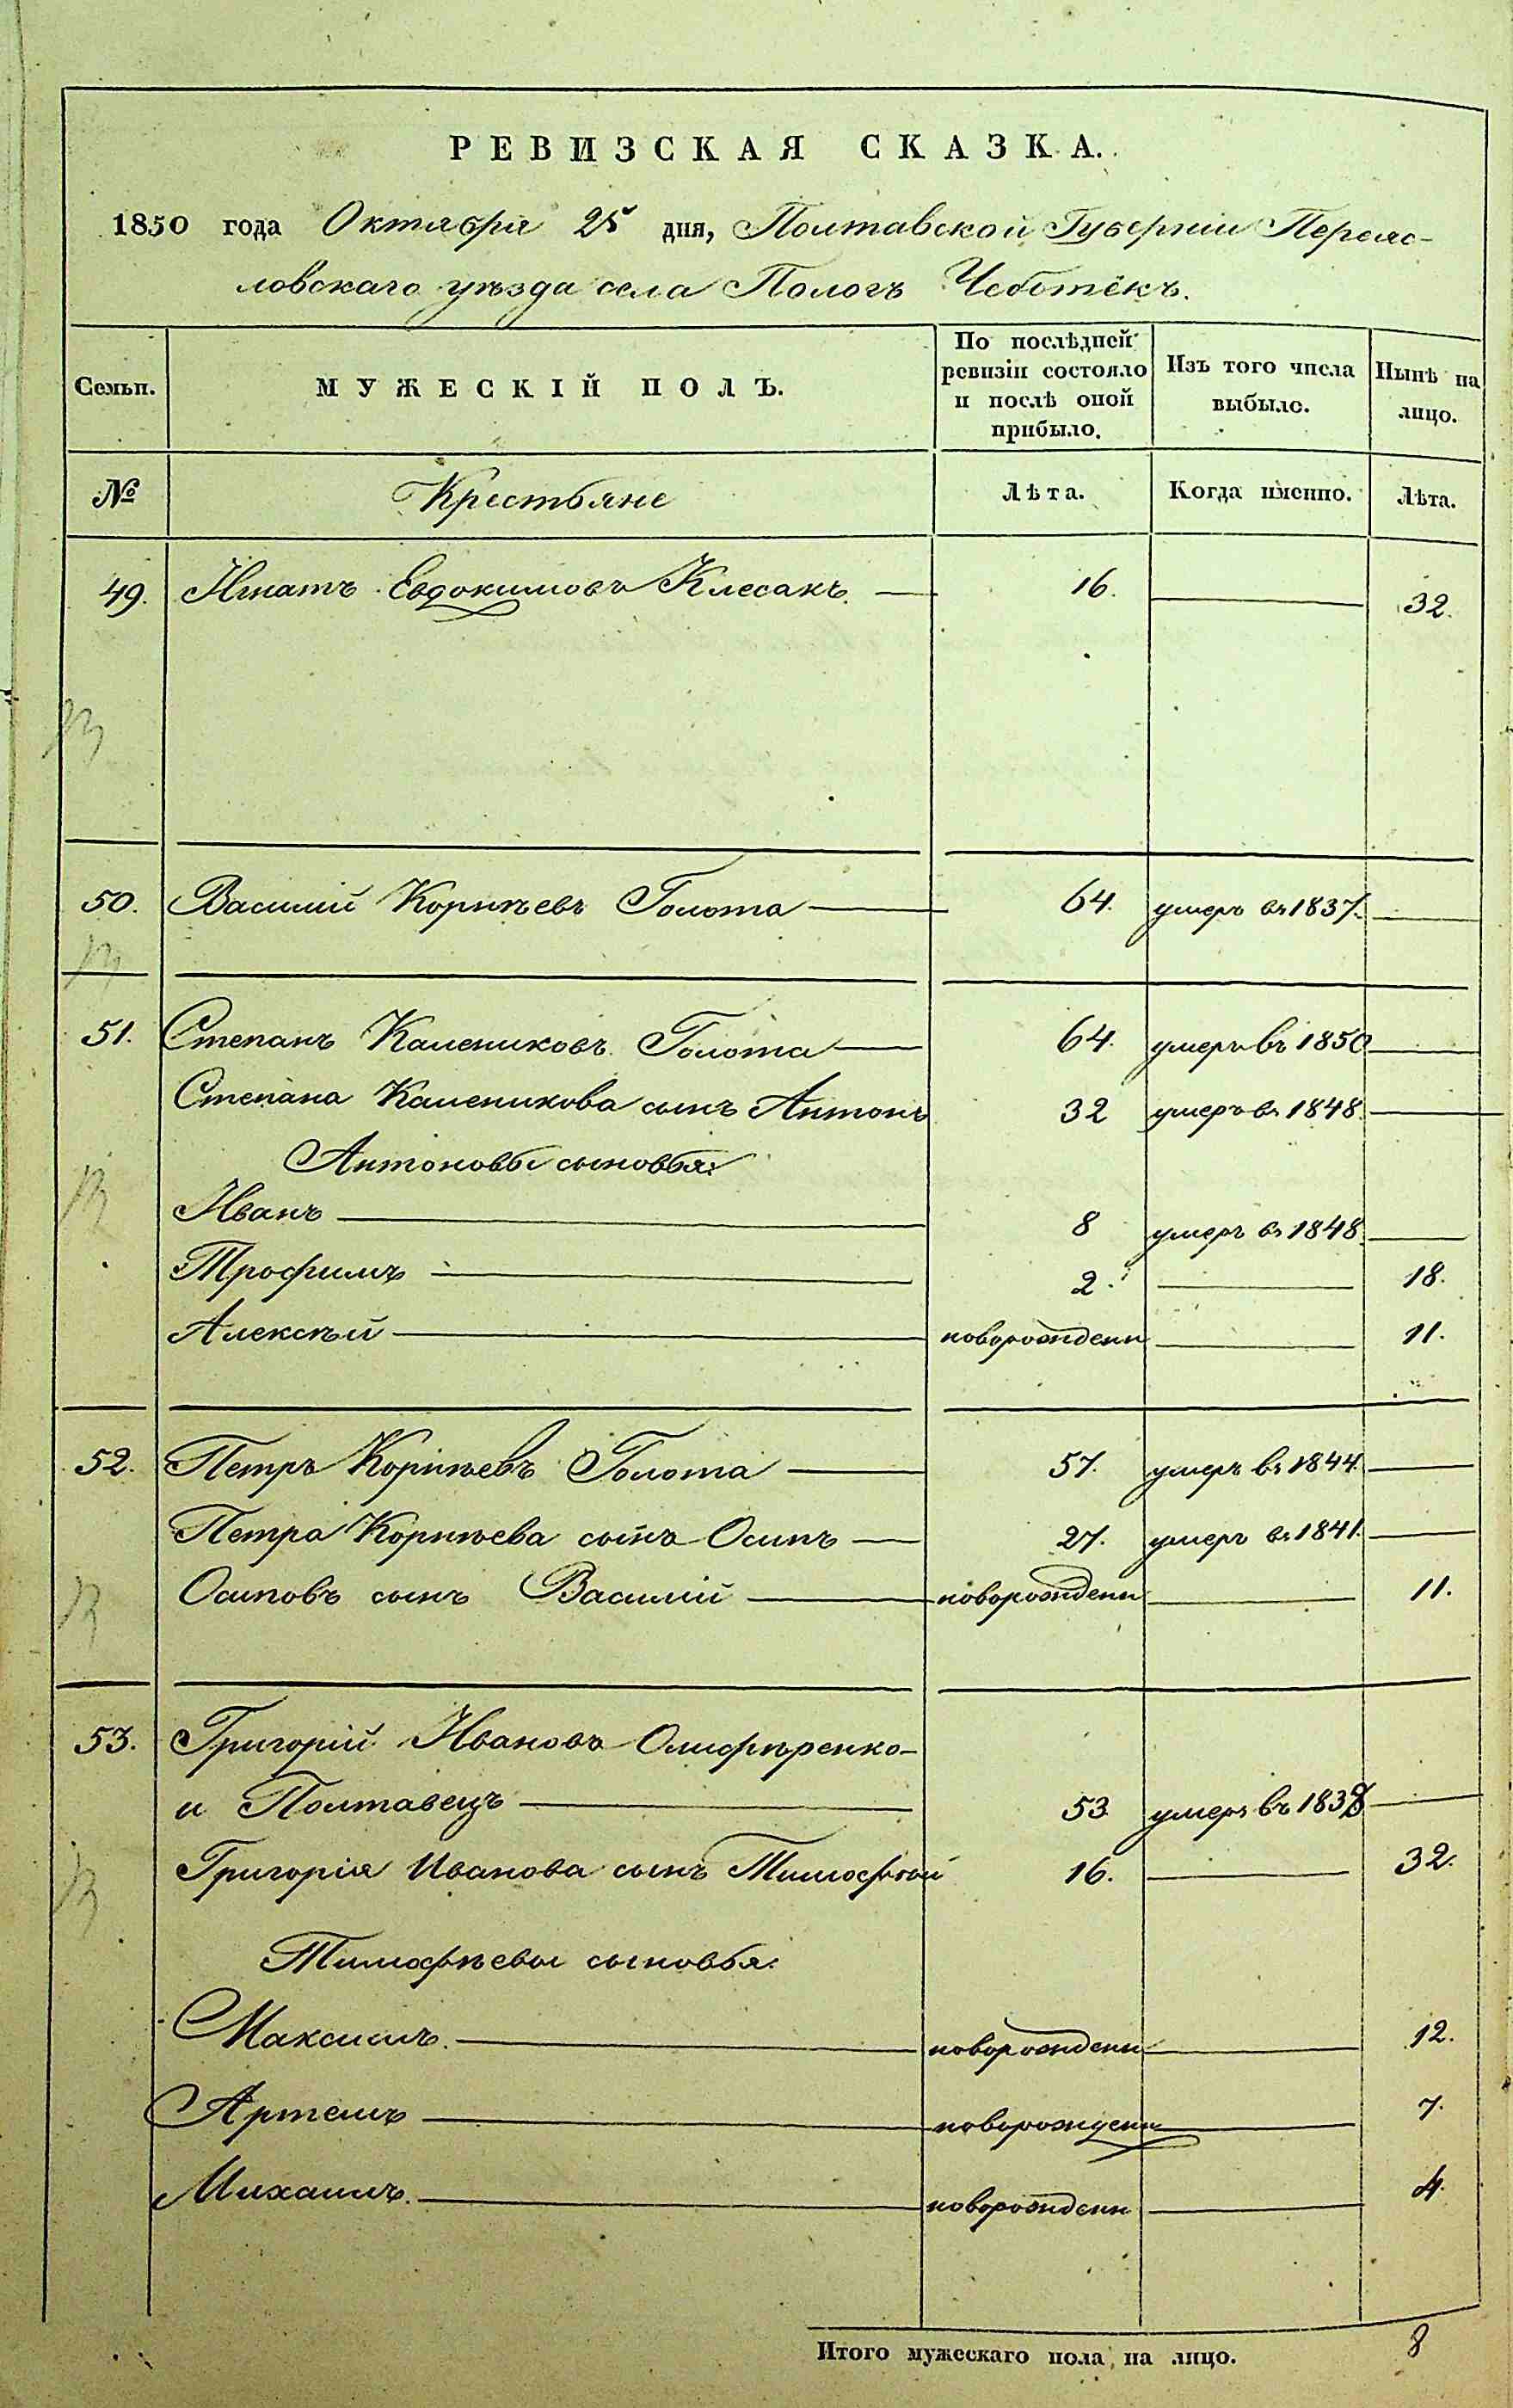 РЕВИЗСКАЯ СКАЗКА.
1850 года Октября 25 дня, Полтавской Губерніи Переяс-
ловскаго уѣзда села Пологъ Чеботёкъ.
Семьи.
МУЖЕСКІЙ ПОЛЪ.
По послѣдней ревизіи состояло и послѣ оной прибыло.
Изъ того числа выбыло.
Нынѣ на лицо.
№ Крестьяне Лѣта. Когда именно. Лѣта.
49. Игнатъ Евдокимовъ Клесакъ. — 16. — 32.
50. Василій Корнѣевъ Голота — 64. умеръ въ 1837. —
51. Степанъ Калениковъ Голота — 64. умеръ въ 1850 —
Степана Каленикова сынъ Антонъ 32 умеръ въ 1848. —
Антоновы сыновья:
Иванъ — 8 умеръ въ 1848. —
Трофимъ — 2. — 18.
Алексѣй — новорожденн — 11.
52. Петръ Корнѣевъ Голота — 57. умеръ въ 1844. —
Петра Корнѣева сынъ Осипъ — 27. умеръ въ 1841. —
Осиповъ сынъ Василій — новорожденн — 11.
53. Григорій Ивановъ Олифѣренко-
и Полтавецъ — 53 умеръ въ 1838 —
Григорія Иванова сынъ Тимофѣй 16. — 32.
Тимофѣевы сыновья:
Максимъ. — новорожденн — 12.
Артемъ — новорожденн — 7.
Михаилъ. — новорожденн — 4.
Итого мужескаго пола на лицо. 8